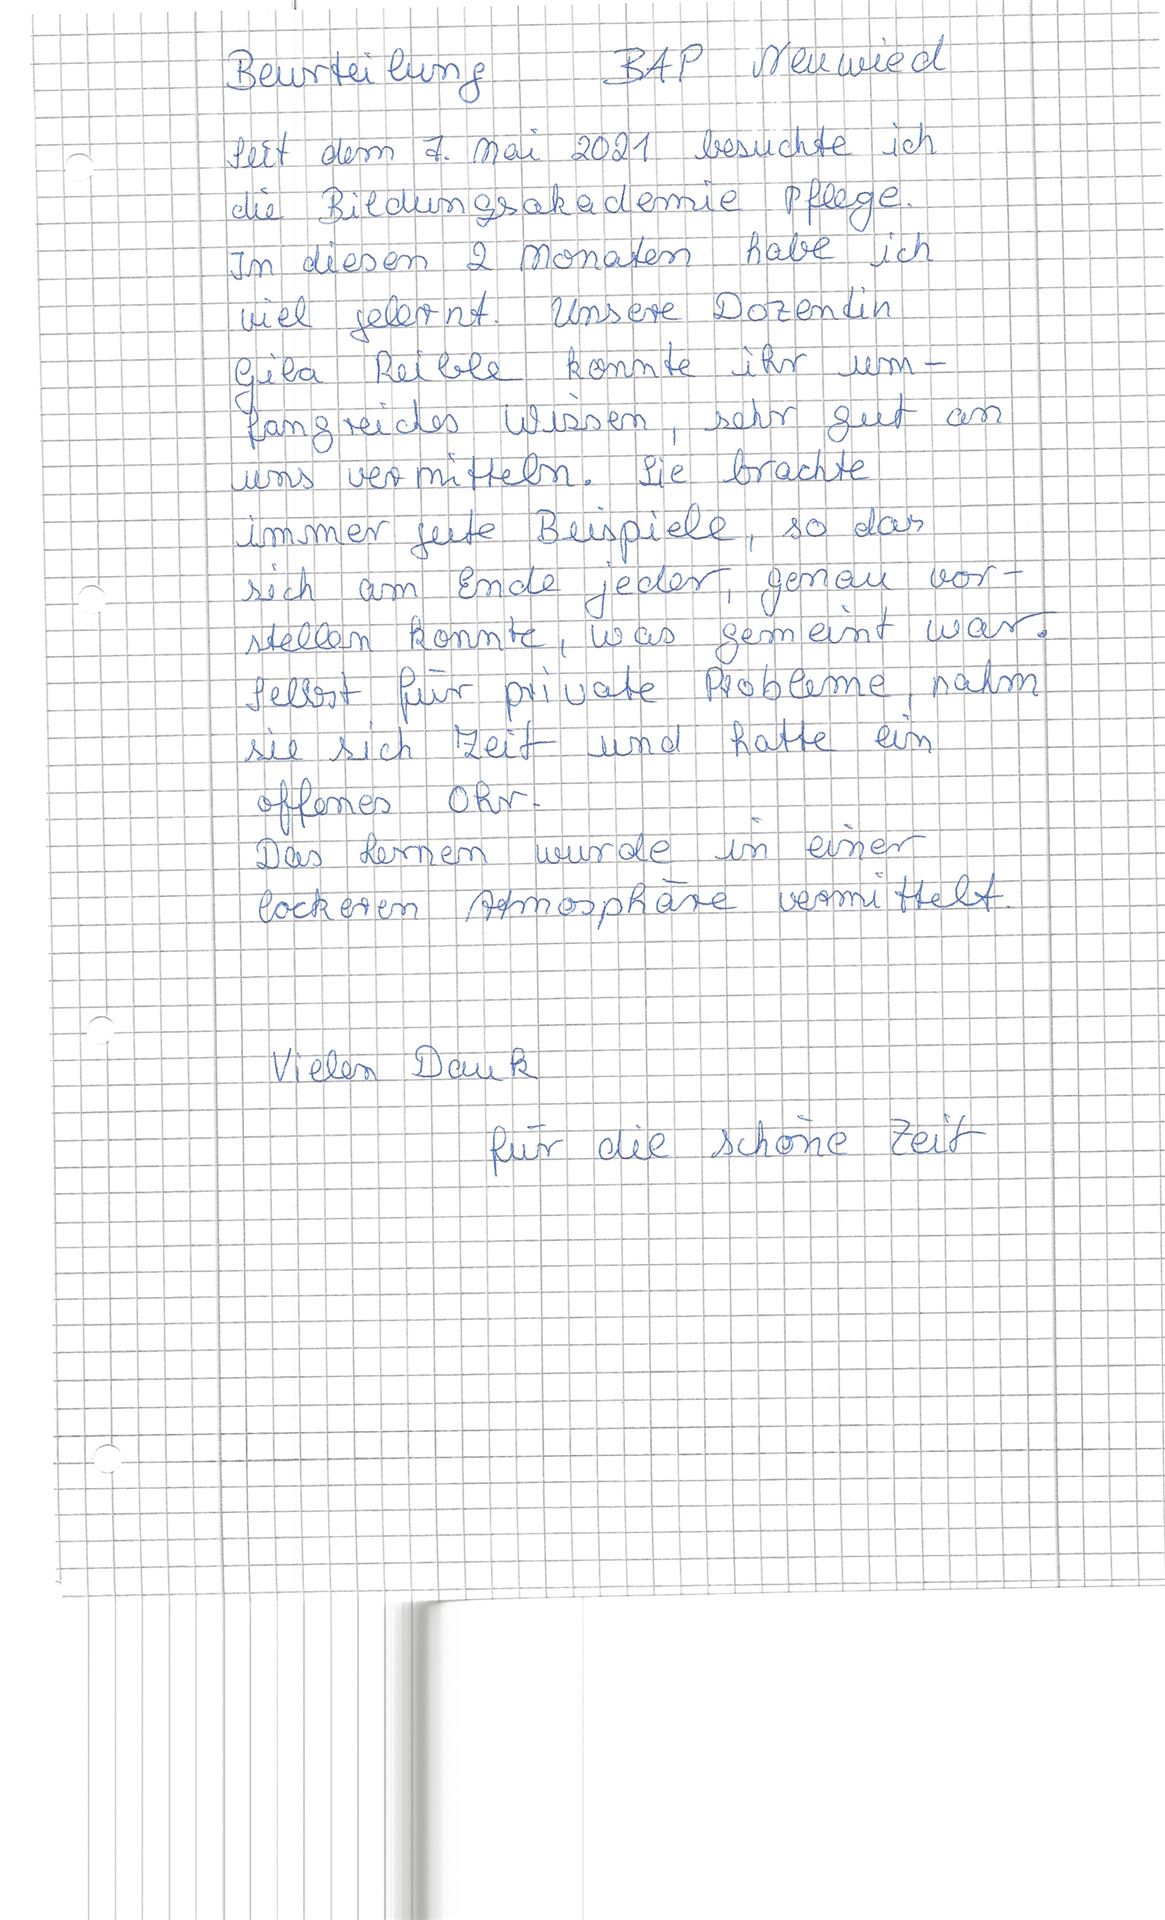 Beurteilung BAP Neuwied
Seit dem 7. Mai 2021 besuchte ich
die Bildungsakademie Pflege.
In diesen 2 Monaten habe ich
viel gelernt. Unsere Dozentin
Gila Reible konnte ihr um-
fangreiches Wissen, sehr gut an
uns vermitteln. Sie brachte
immer gute Beispiele, so das
sich am Ende jeder, genau vor-
stellen konnte, was gemeint war.
Selbst für private Probleme, nahm
sie sich Zeit und hatte ein
offenes Ohr.
Das Lernen wurde in einer
lockeren Atmosphäre vermittelt.
Vielen Dank
für die schöne Zeit